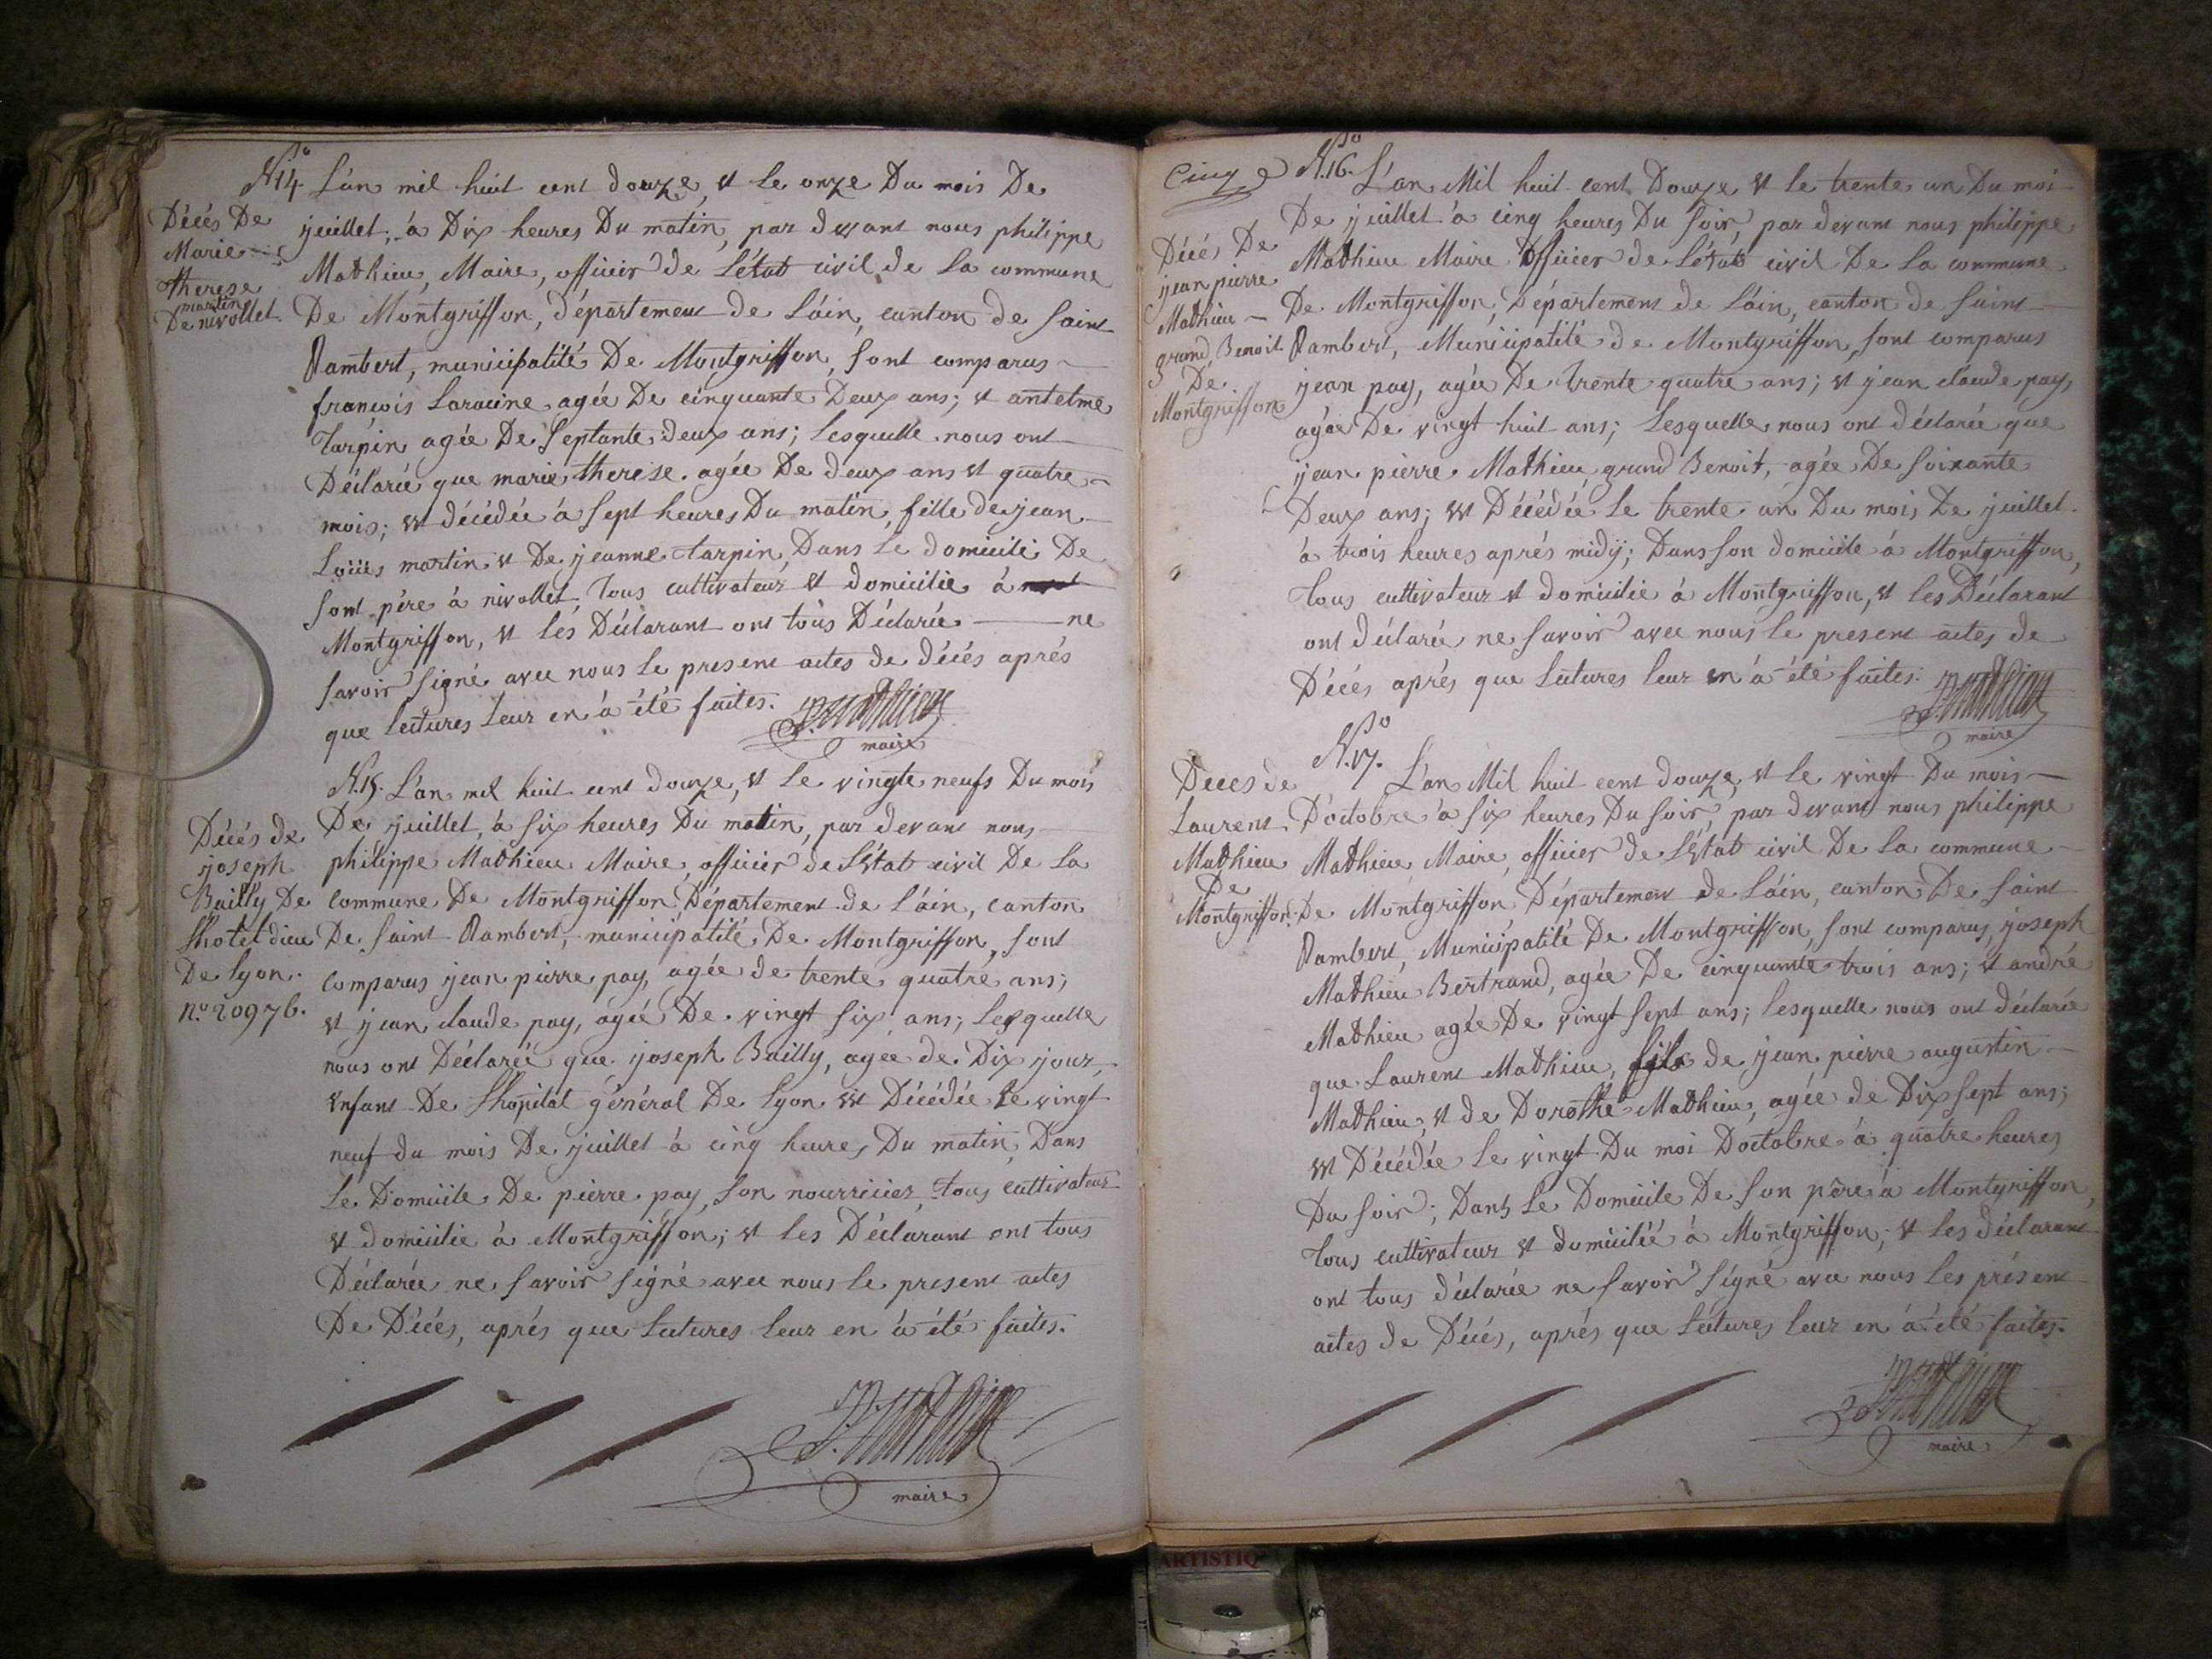 No 14. L'an mil huit cent douze, et le onze Du mois De
Décés De
Marie
therese
martin
De nivollet.
juillet; à Dix heures Du matin, par devant nous philippe
Mathieu, Maire, officier de L'état civil de La commune
De Montgriffon, département de L'áin, canton de saint
Rambert, municipalité De Montgriffon, sont comparus
francois Laracine agée De cinquante Deux ans; et antelme
tarpin agée De septante deux ans; Lesquelle nous ont
Déclarée que marie therese agée De deux ans et quatre
mois; est décédée à sept heures Du matin, fille de jean
Loüis martin et De jeanne tarpin, Dans Le domicile De
sont pére à nivollet, tous cultivateur et domicilie à
Montgriffon, et Les Déclarant ont tous Déclarée ne
savoir signé avec nous Le present actes de décés aprés
que Lectures Leur en à été faites. P. Mathieu
maire
N.15. L'an mil huit cent douze, et Le vingte neufs Du mois
Décés de
joseph
Bailly De
Lhotel dieu
De Lyon.
n.o 20976.
De juillet, à six heures Du matin, par devant nous
philippe Mathieu Maire, officier de L'état civil De La
commune De Montgriffon Département de L'áin, canton
De saint Rambert, municipalité De Montgriffon, sont
comparus jean pierre pay, agée de trente quatre ans;
et jean claude pay, agée De vingt six ans; Lesquelle
nous ont Déclarée que joseph Bailly, agée de Dix jour,
enfant De Lhopital général De Lyon est Décédée Le vingt
neuf du mois De juillet à cinq heures Du matin, Dans
Le Domicile De pierre pay, son nourricier tous cultivateur
et domicilie à Montgriffon; et Les Déclarant ont tous
Déclarée ne savoir signé avec nous Le present actes
De Décés, aprés que Lectures Leur en à été faites.
P. Mathieu
maire
Cinq
No 16. L'an Mil huit cent Douze et Le trente un Du moi
Décés De
jean pierre
Mathieu
grand Benoit
De
Montgriffon
De juillet à cinq heures Du soir, par devant nous philippe
Mathieu Maire officier de L'état civil De La commune
De Montgriffon, Département de L'áin, canton de saint
Rambert, Municipalité de Montgriffon, sont comparus
jean pay, agée De trente quatre ans; et jean claude pay,
agée De vingt huit ans; Lesquelle nous ont déclarée que
jean pierre Mathieu grand Benoit, agée De soixante
Deux ans; est Décédée Le trente un Du mois De juillet
à trois heures aprés midy; Dans son domicile à Montgriffon,
tous cultivateur et domicilie à Montgriffon, et Les Déclarant
ont déclarée ne savoir avec nous Le present actes de
Décés aprés que Lectures Leur en à été faites. P. Mathieu
maire
No 17. L'an Mil huit cent douze, et Le vingt Du mois
Deces de
Laurent
Mathieu
De
Montgriffon.
D'octobre à six heures Du soir, par devant nous philippe
Mathieu Maire, officier de L'état civil De La commune
De Montgriffon Département de L'áin, canton De saint
Rambert, Municipalité De Montgriffon, sont comparus, joseph
Mathieu Bertrand, agée De cinquante trois ans; et andré
Mathieu agée De vingt sept ans; Lesquelle nous ont déclarée
que Laurent Mathieu, fils de jean pierre augustin
Mathieu, et de Dorothé Mathieu, agée de Dix sept ans;
est Décédée Le vingt Du moi D'octobre à quatre heures
Du soir; Dans Le Domicile De son pére à Montgriffon,
tous cultivateur et domicilée à Montgriffon; et Les déclarant
ont tous déclarée ne savoir signé avec nous Les présent
actes de Décés, aprés que Lectures Leur en à été faites.
P. Mathieu
maire
ARTISTIQ